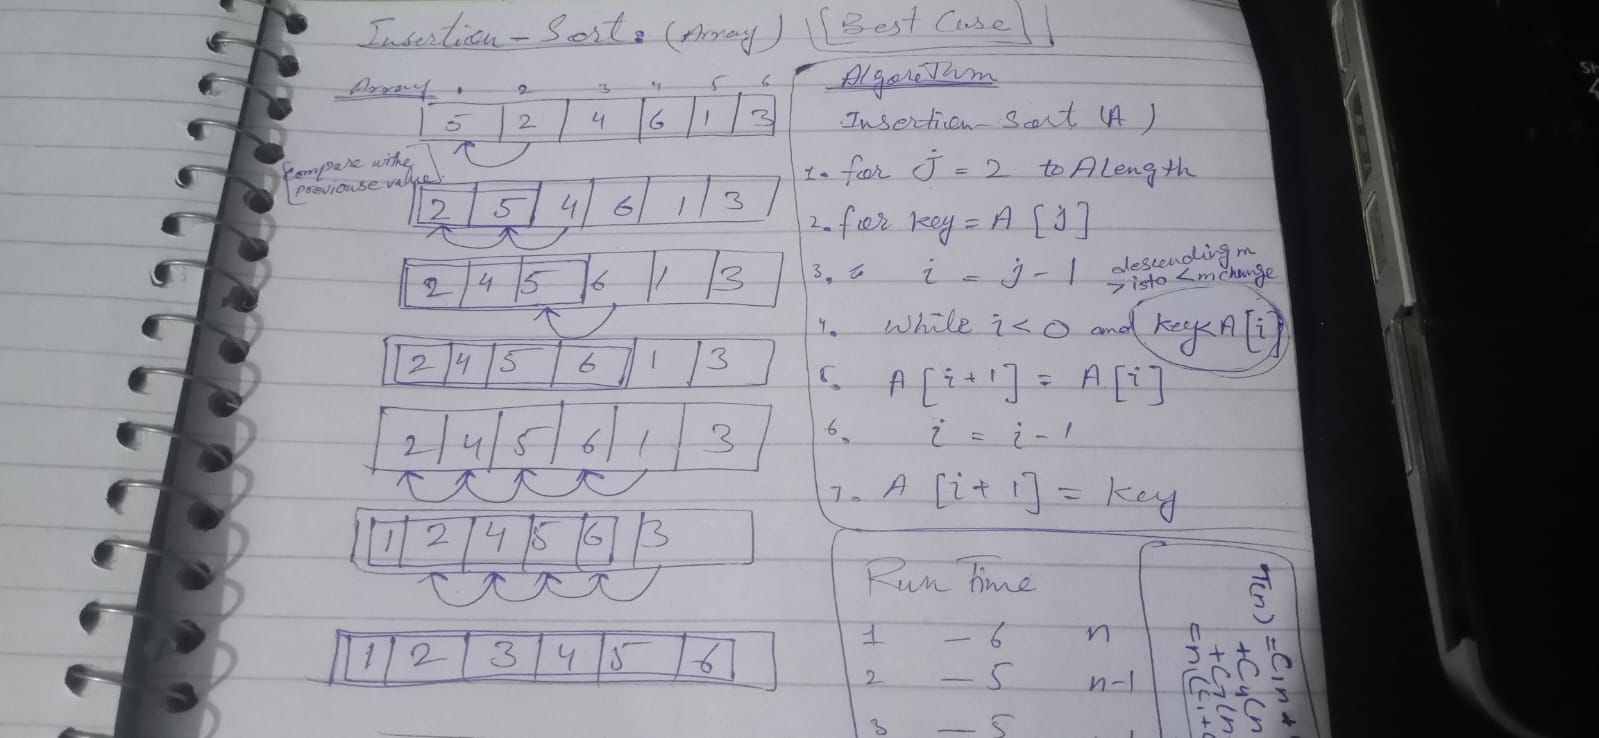 Insertion - Sort: (Array) [Best Case]
Array 1 2 3 4 5 6
5 2 4 6 1 3
Compare withe
previouse value.
2 5 4 6 1 3
2 4 5 6 1 3
2 4 5 6 1 3
2 4 5 6 1 3
1 2 4 5 6 3
1 2 3 4 5 6
Algorethm
Insertion-Sort (A)
1. for j = 2 to A length
2. for key = A [j]
3. i = j - 1
descending m
> isto < m change
4. While i < 0 and key < A[i]
5. A [i + 1] = A [i]
6. i = i - 1
7. A [i + 1] = key
Run Time
1 - 6 n
2 - 5 n-1
3 - 5
T(n) = C1n +
+ C4(n
+ C7(n
= n(C1+